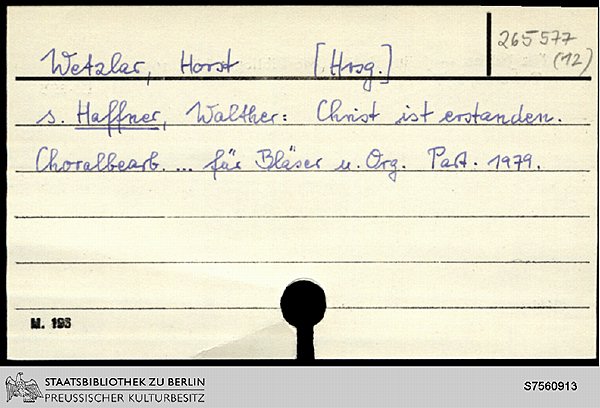 Wetzlar, Horst [Hrsg.]
265577
(12)
s. Haffner, Walther: Christ ist erstanden.
Choralbearb. ... für Bläser u. Org. Part. 1979.
M. 193
STAATSBIBLIOTHEK ZU BERLIN
PREUSSISCHER KULTURBESITZ
S7560913